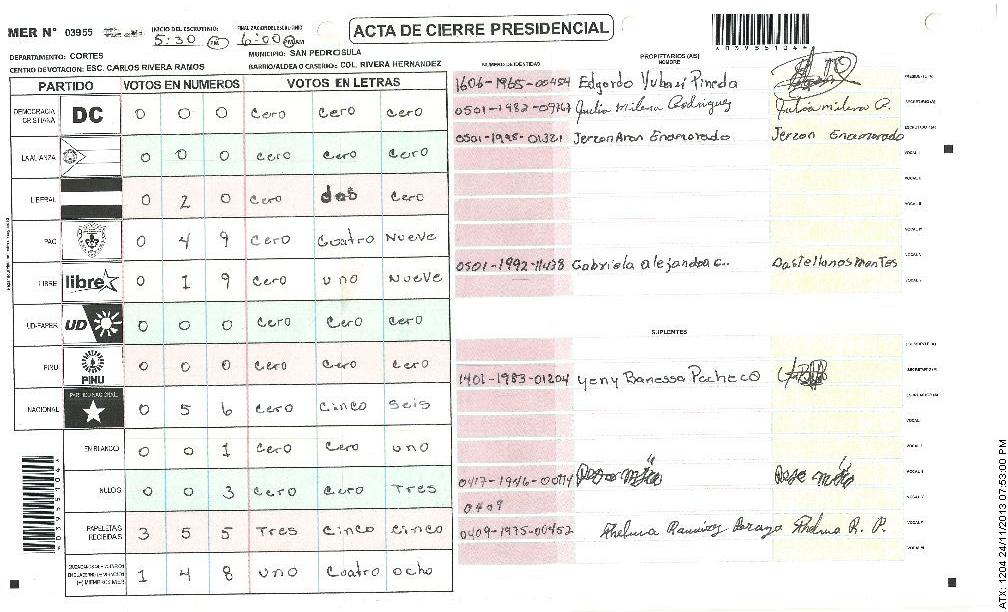 MER N° 03955
INICIO DEL ESCRUTINIO: 5:30 PM
FINALIZACION DEL ESCRUTINIO 6:00 PM AM
ACTA DE CIERRE PRESIDENCIAL
039551044
DEPARTAMENTO: CORTES
MUNICIPIO: SAN PEDRO SULA
CENTRO DE VOTACION: ESC. CARLOS RIVERA RAMOS
BARRIO/ALDEA O CASERIO: COL. RIVERA HERNANDEZ
PARTIDO VOTOS EN NUMEROS VOTOS EN LETRAS
DEMOCRACIA CRISTIANA DC 0 0 0 cero cero cero
LA ALIANZA 0 0 0 cero cero cero
LIBERAL 0 2 0 cero dos cero
PAC 0 4 9 cero cuatro Nueve
LIBRE libre 0 1 9 cero uno Nueve
UD-FAPER UD 0 0 0 cero cero cero
PINU PINU 0 0 0 cero cero cero
NACIONAL PARTIDO NACIONAL 0 5 6 cero cinco seis
EN BLANCO 0 0 1 cero cero uno
NULOS 0 0 3 cero cero Tres
PAPELETAS RECIBIDAS 3 5 5 Tres cinco cinco
1 4 8 uno cuatro ocho
NUMERO DE IDENTIDAD
PROPIETARIOS (AS)
NOMBRE
1606-1965-00454 Edgardo Yubani Pineda
0501-1982-09767 Julia Milena Rodriguez Julia milena R.
0501-1995-01321 Jerzon Aron Enamorado Jerzon Enamorado
0501-1992-11438 Gabriela alejandra c. Castellanos montes
SUPLENTES
1401-1983-01204 Yeny Banessa Pacheco
0417-1946-00114
0409
0409-1975-00452 Thelma Ramirez Thelma R. P.
ATX: 1204 24/11/2013 07:53:00 PM